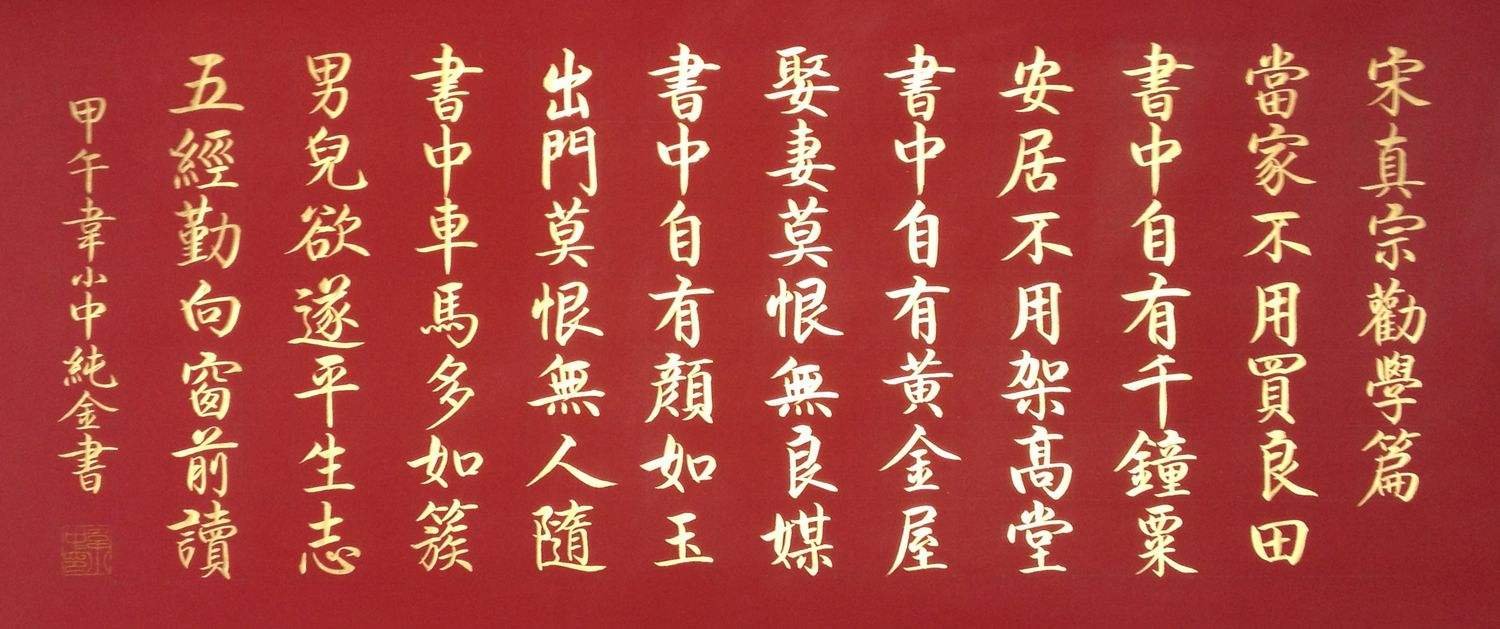 宋真宗勸學篇
當家不用買良田
書中自有千鐘粟
安居不用架髙堂
書中自有黄金屋
娶妻莫恨無良媒
書中自有顔如玉
出門莫恨無人隨
書中車馬多如簇
男兒欲遂平生志
五經勤向窗前讀
甲午韋小中純金書